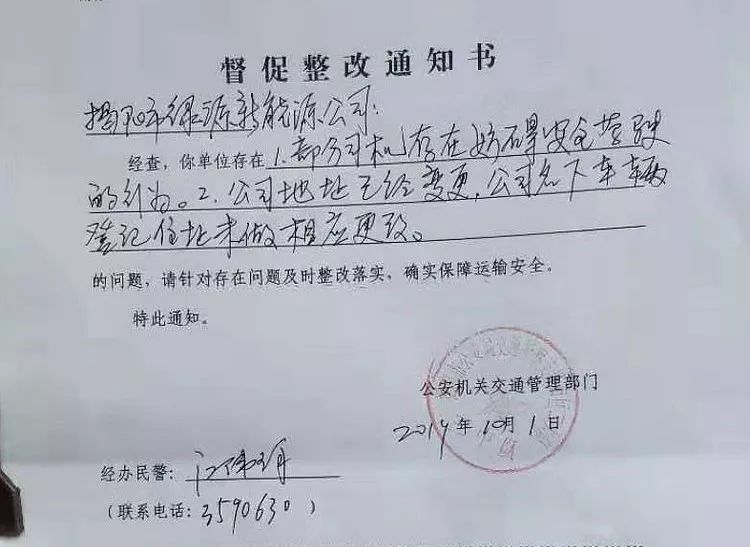 督促整改通知书
揭阳市绿源新能源公司：
经查，你单位存在1.部分司机存在妨碍安全驾驶
的行为。2.公司地址已经变更，公司名下车辆
登记住址未做相应更改。
的问题，请针对存在问题及时整改落实，确实保障运输安全。
特此通知。
公安机关交通管理部门
2019年10月1日
经办民警：江
（联系电话：3590630）